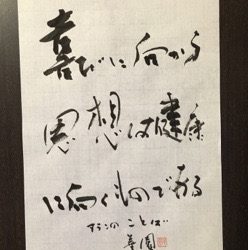 喜びに向かう
思想は健康
に向くものである
アランのことば